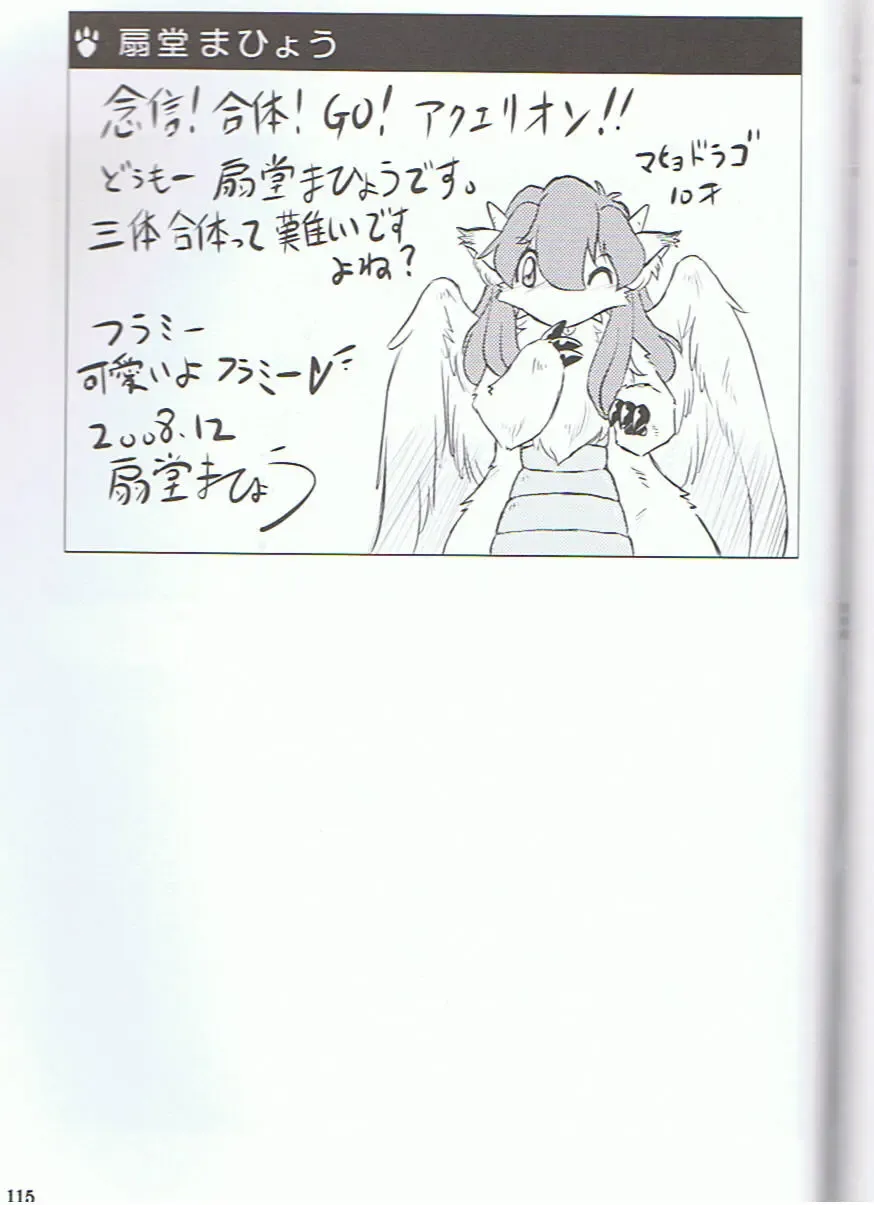 扇堂まひょう
念信!合体!GO!アクエリオン!!
どうもー 扇堂まひょうです。
三体合体って難しいです
よね?
マヒョドラゴ
10才
フラミー
可愛いよフラミー
2008.12
扇堂まひょう
115